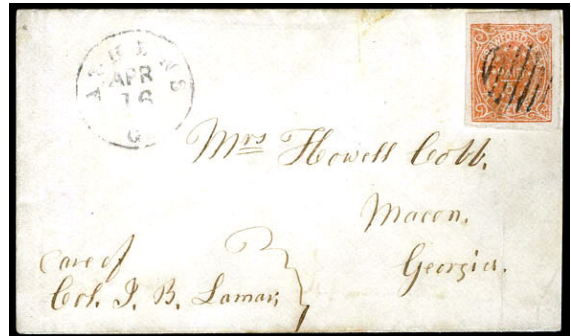 ATHENS
APR
16
Ga
PAID
Mrs Howell Cobb.
Macon,
Georgia.
Care of
Col. J. B. Lamar,